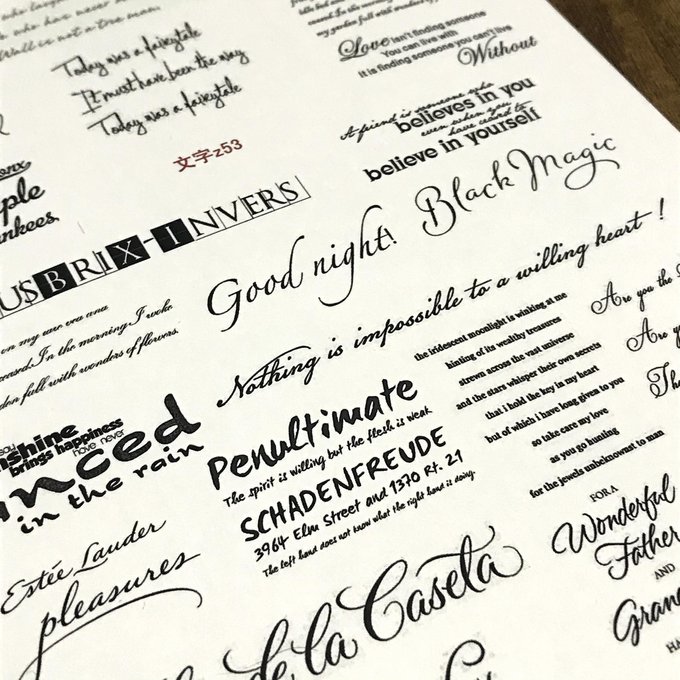 Wall is not a tree man.
Today was a fairytale
It must have been the way
Today was a fairytale
文字z53
Love isn't finding someone
You can live with
it is finding someone you can't live
Without
A friend is someone who
believes in you
even when you
have ceased to
believe in yourself
Black Magic
ple
nkees
USBRIX-INVERS
Good night!
Nothing is impossible to a willing heart !
In the morning I woke
den full with wonders of flowers.
nshine
brings happiness
have never
nced
in the rain
Penultimate
The spirit is willing but the flesh is weak
SCHADENFREUDE
3964 Elm Street and 1370 Rt. 21
The left hand does not know what the right hand is doing.
the iridescent moonlight is winking at me
hinting of its wealthy treasures
strewn across the vast universe
and the stars whisper their own secrets
that i hold the key in my heart
but of which i have long given to you
so take care my love
as you go hunting
for the jewels unbeknownst to man
Are you the
Are y
Th
Estée Lauder
pleasures
de la Caseta
FOR A
Wonderful
Father
AND
Gran
HA